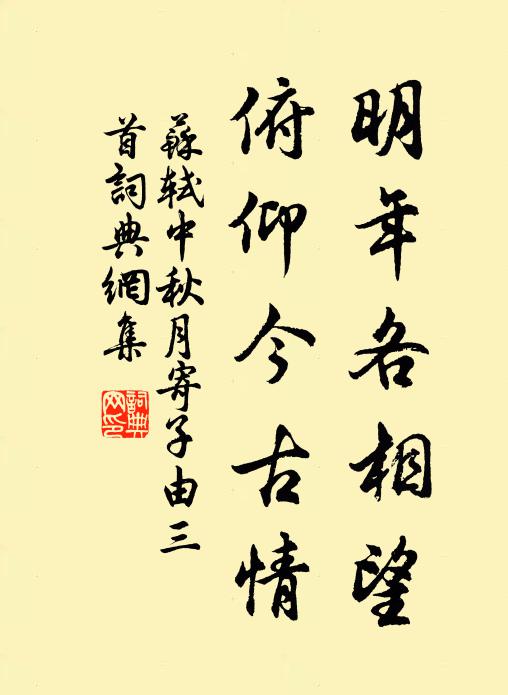 明年各相望
俯仰今古情
蘇軾中秋月寄子由三
首詞典網集
詞典
网印